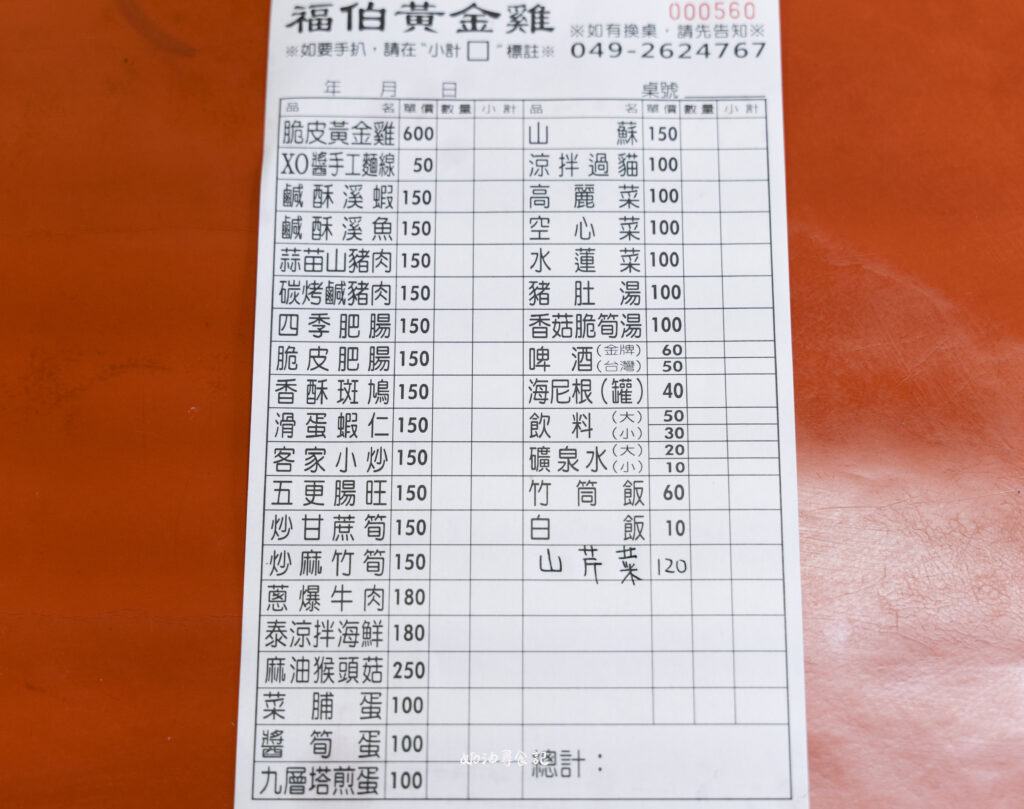 福伯黃金雞
000560
※如有換桌，請先告知※
※如要手扒，請在"小計□"標註※
049-2624767
年 月 日 桌號
品名 單價 數量 小計 品名 單價 數量 小計
脆皮黃金雞 600 山蘇 150
XO醬手工麵線 50 涼拌過貓 100
鹹酥溪蝦 150 高麗菜 100
鹹酥溪魚 150 空心菜 100
蒜苗山豬肉 150 水蓮菜 100
碳烤鹹豬肉 150 豬肚湯 100
四季肥腸 150 香菇脆筍湯 100
脆皮肥腸 150 啤酒 (金牌) 60 (台灣) 50
香酥斑鳩 150 海尼根(罐) 40
滑蛋蝦仁 150 飲料 (大) 50 (小) 30
客家小炒 150 礦泉水 (大) 20 (小) 10
五更腸旺 150 竹筒飯 60
炒甘蔗筍 150 白飯 10
炒麻竹筍 150 山芹菜 120
蔥爆牛肉 180
泰涼拌海鮮 180
麻油猴頭菇 250
菜脯蛋 100
醬筍蛋 100 總計：
九層塔煎蛋 100